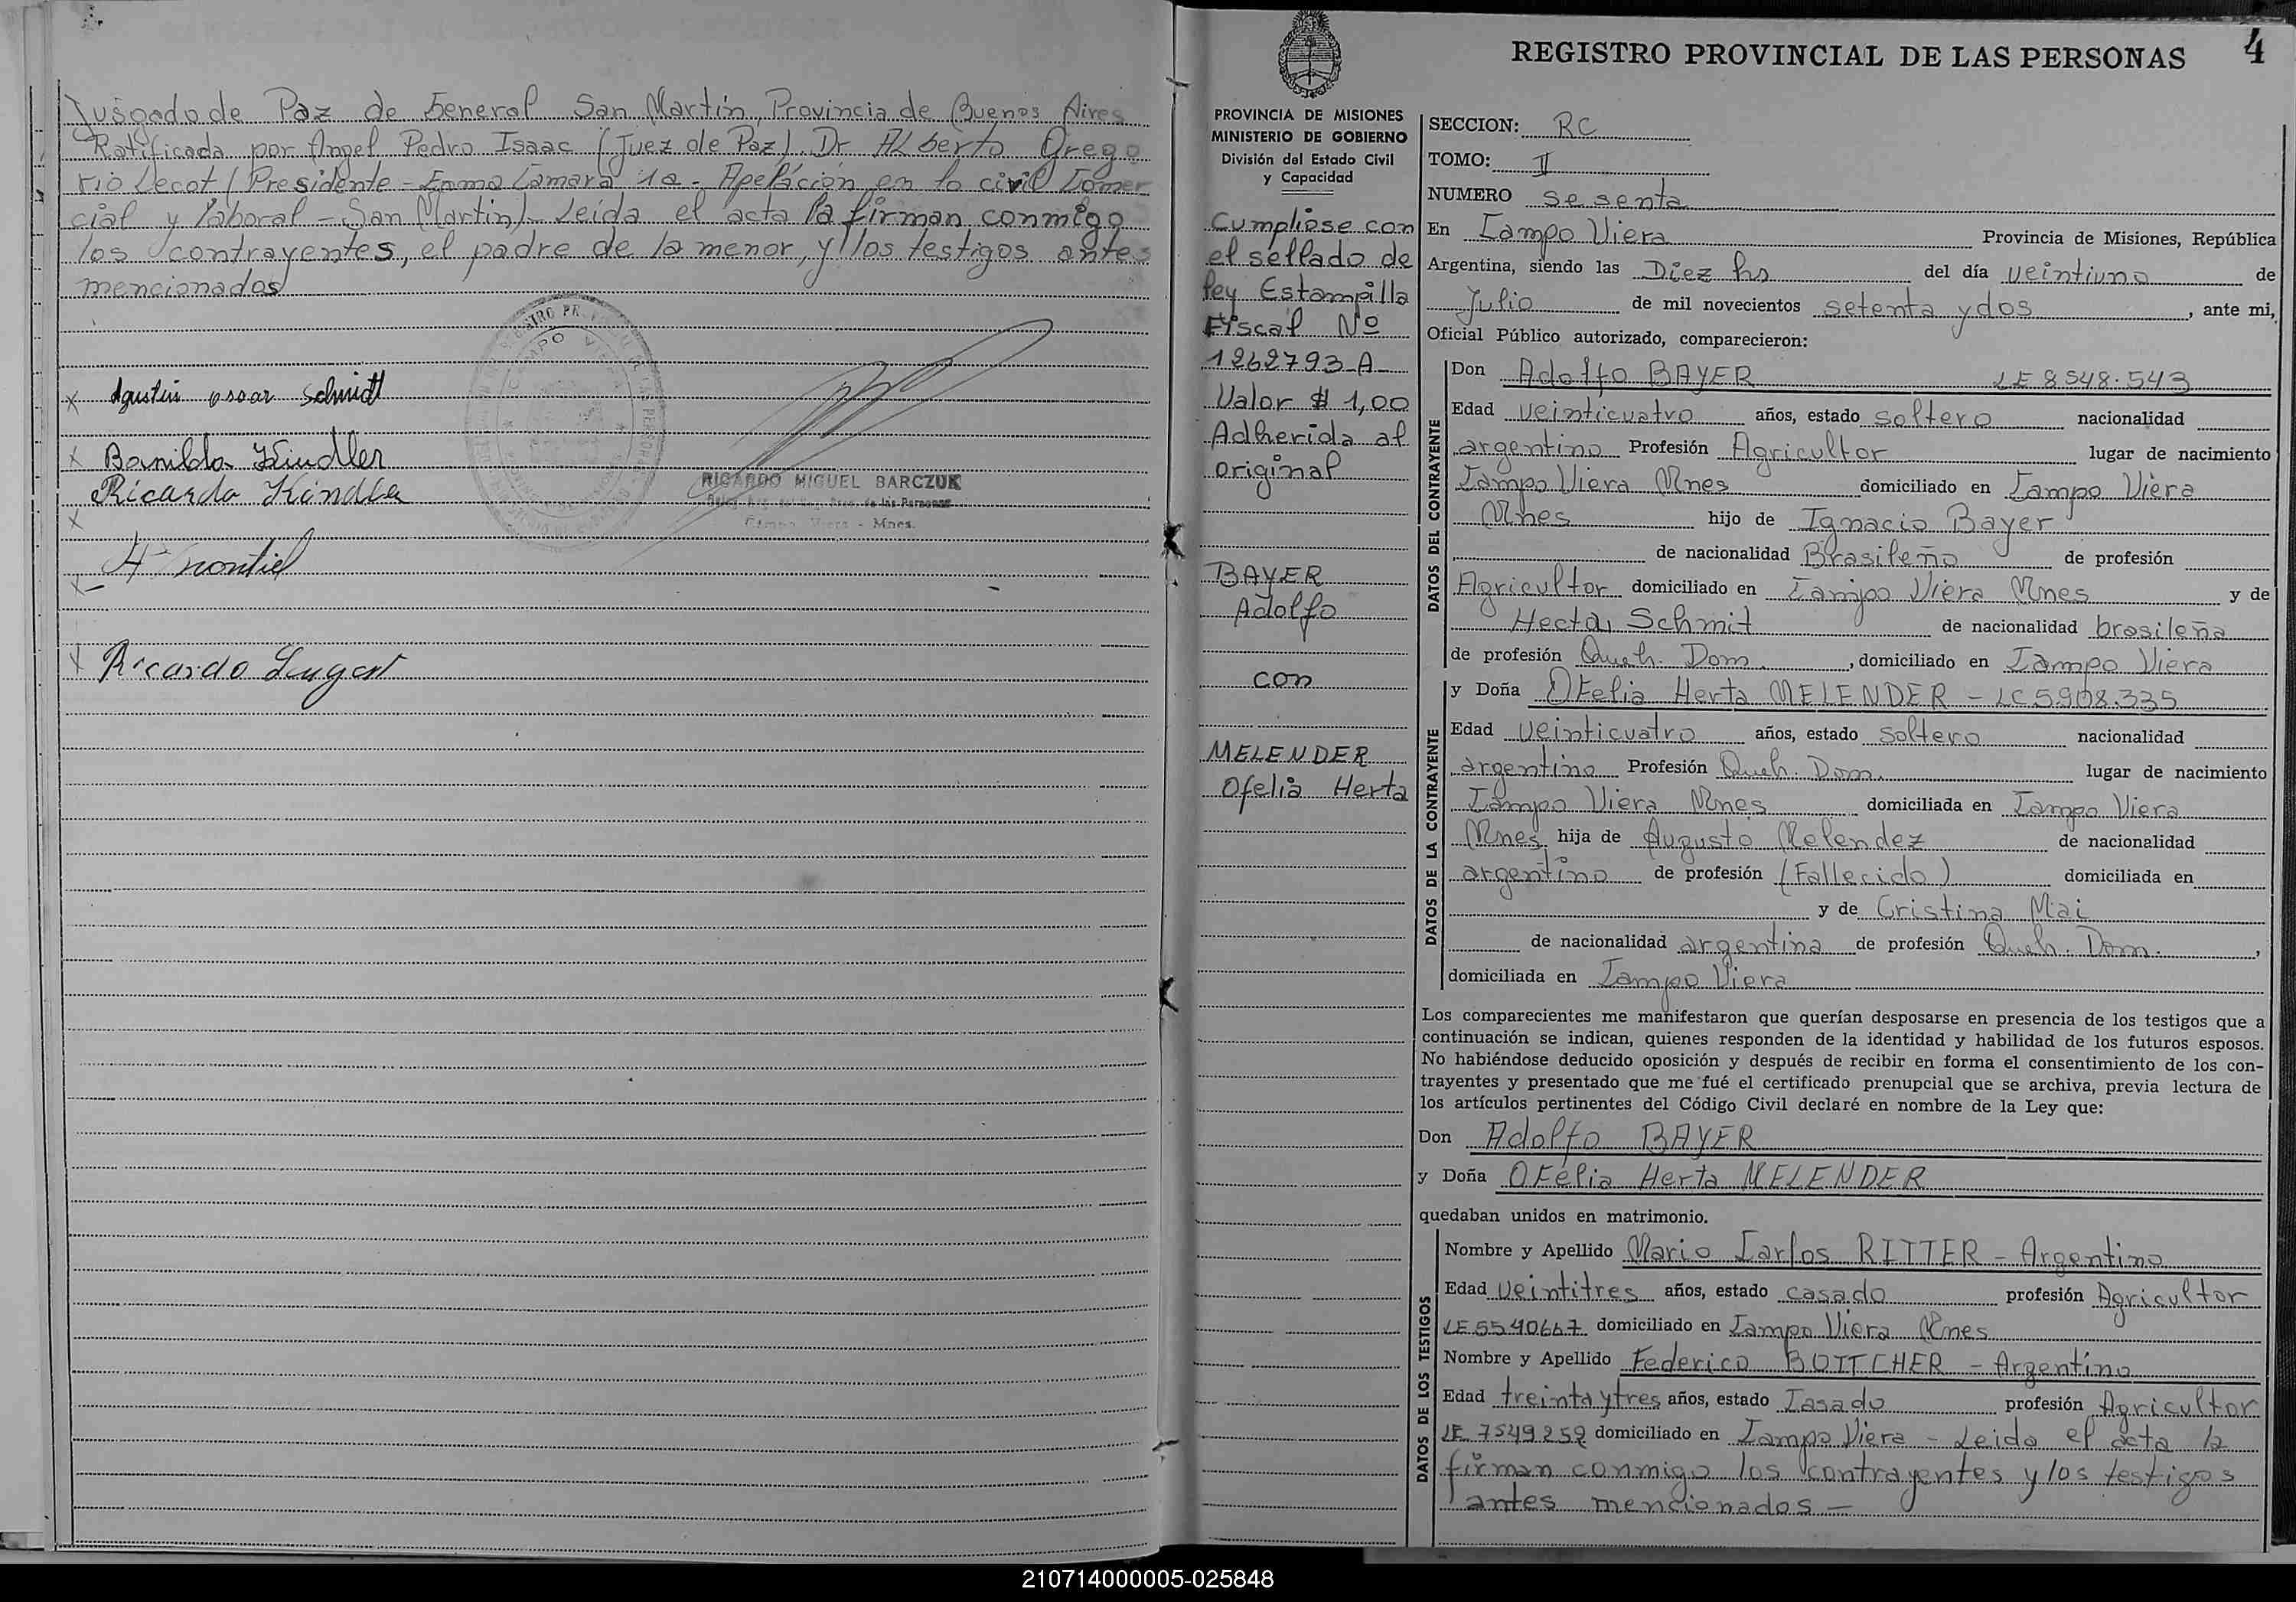 Jusgado de Paz de General San Martín, Provincia de Buenos Aires
Ratificada por Angel Pedro Isaac (Juez de Paz) Dr Alberto Grego
rio Lecot (Presidente - Exma Camara 1a - Apelación en lo civil Comer
cial y laboral - San Martin) - Leída el acta la firman conmigo
los contrayentes, el padre de la menor, y los testigos antes
mencionados
x Agustin oscar Schmidt
x Banilda Kindler
Ricardo Kindler
x
x Montiel
x Ricardo
RICARDO MIGUEL BARCZUK
de las Personas
Campo Viera - Mnes.
4
REGISTRO PROVINCIAL DE LAS PERSONAS
PROVINCIA DE MISIONES
MINISTERIO DE GOBIERNO
División del Estado Civil
y Capacidad
Cumpliose con
el sellado de
ley Estampilla
Fiscal Nº
1262793-A-
Valor $ 1,00
Adherida al
original
BAYER
Adolfo
con
MELENDER
Ofelia Herta
SECCION: RC
TOMO: II
NUMERO sesenta
En Campo Viera Provincia de Misiones, República
Argentina, siendo las Diez hs del día veintiuno de
Julio de mil novecientos setenta y dos, ante mi,
Oficial Público autorizado, comparecieron:
DATOS DEL CONTRAYENTE
Don Adolfo BAYER LE 8548.543
Edad veinticuatro años, estado soltero nacionalidad
argentino Profesión Agricultor lugar de nacimiento
Campo Viera Mnes domiciliado en Campo Viera
Mnes hijo de Ignacio Bayer
de nacionalidad Brasileño de profesión
Agricultor domiciliado en Campo Viera Mnes y de
Herta Schmit de nacionalidad brasileña
de profesión Queh. Dom., domiciliado en Campo Viera
DATOS DE LA CONTRAYENTE
y Doña Ofelia Herta MELENDER - LC 5.908.335
Edad veinticuatro años, estado soltero nacionalidad
argentino Profesión Queh. Dom. lugar de nacimiento
Campo Viera Mnes domiciliada en Campo Viera
Mnes hija de Augusto Melendez de nacionalidad
argentino de profesión (Fallecido) domiciliada en
y de Cristina Mai
de nacionalidad argentina de profesión Queh. Dom.,
domiciliada en Campo Viera
Los comparecientes me manifestaron que querían desposarse en presencia de los testigos que a
continuación se indican, quienes responden de la identidad y habilidad de los futuros esposos.
No habiéndose deducido oposición y después de recibir en forma el consentimiento de los con-
trayentes y presentado que me fué el certificado prenupcial que se archiva, previa lectura de
los artículos pertinentes del Código Civil declaré en nombre de la Ley que:
Don Adolfo BAYER
y Doña Ofelia Herta MELENDER
quedaban unidos en matrimonio.
DATOS DE LOS TESTIGOS
Nombre y Apellido Mario Carlos RITTER - Argentino
Edad veintitres años, estado casado profesión Agricultor
LE 5540667 domiciliado en Campo Viera Mnes
Nombre y Apellido Federico BOTTCHER - Argentino
Edad treinta y tres años, estado Casado profesión Agricultor
LE 7549259 domiciliado en Campo Viera - Leido el acta la
firman conmigo los contrayentes y los testigos
antes mencionados -
210714000005-025848